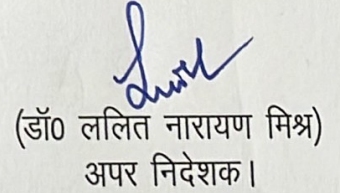 (डॉ0 ललित नारायण मिश्र)
अपर निदेशक।